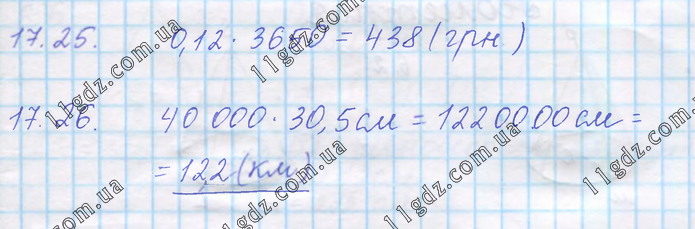 17.25. 0,12 · 3650 = 438 (грн.)
17.26. 40 000 · 30,5 см = 1220000 см =
= 12,2 (км)
11gdz.com.ua
11gdz.com.ua
11gdz.com.ua
11gdz.com.ua
11gdz.com.ua
11gdz.com.ua